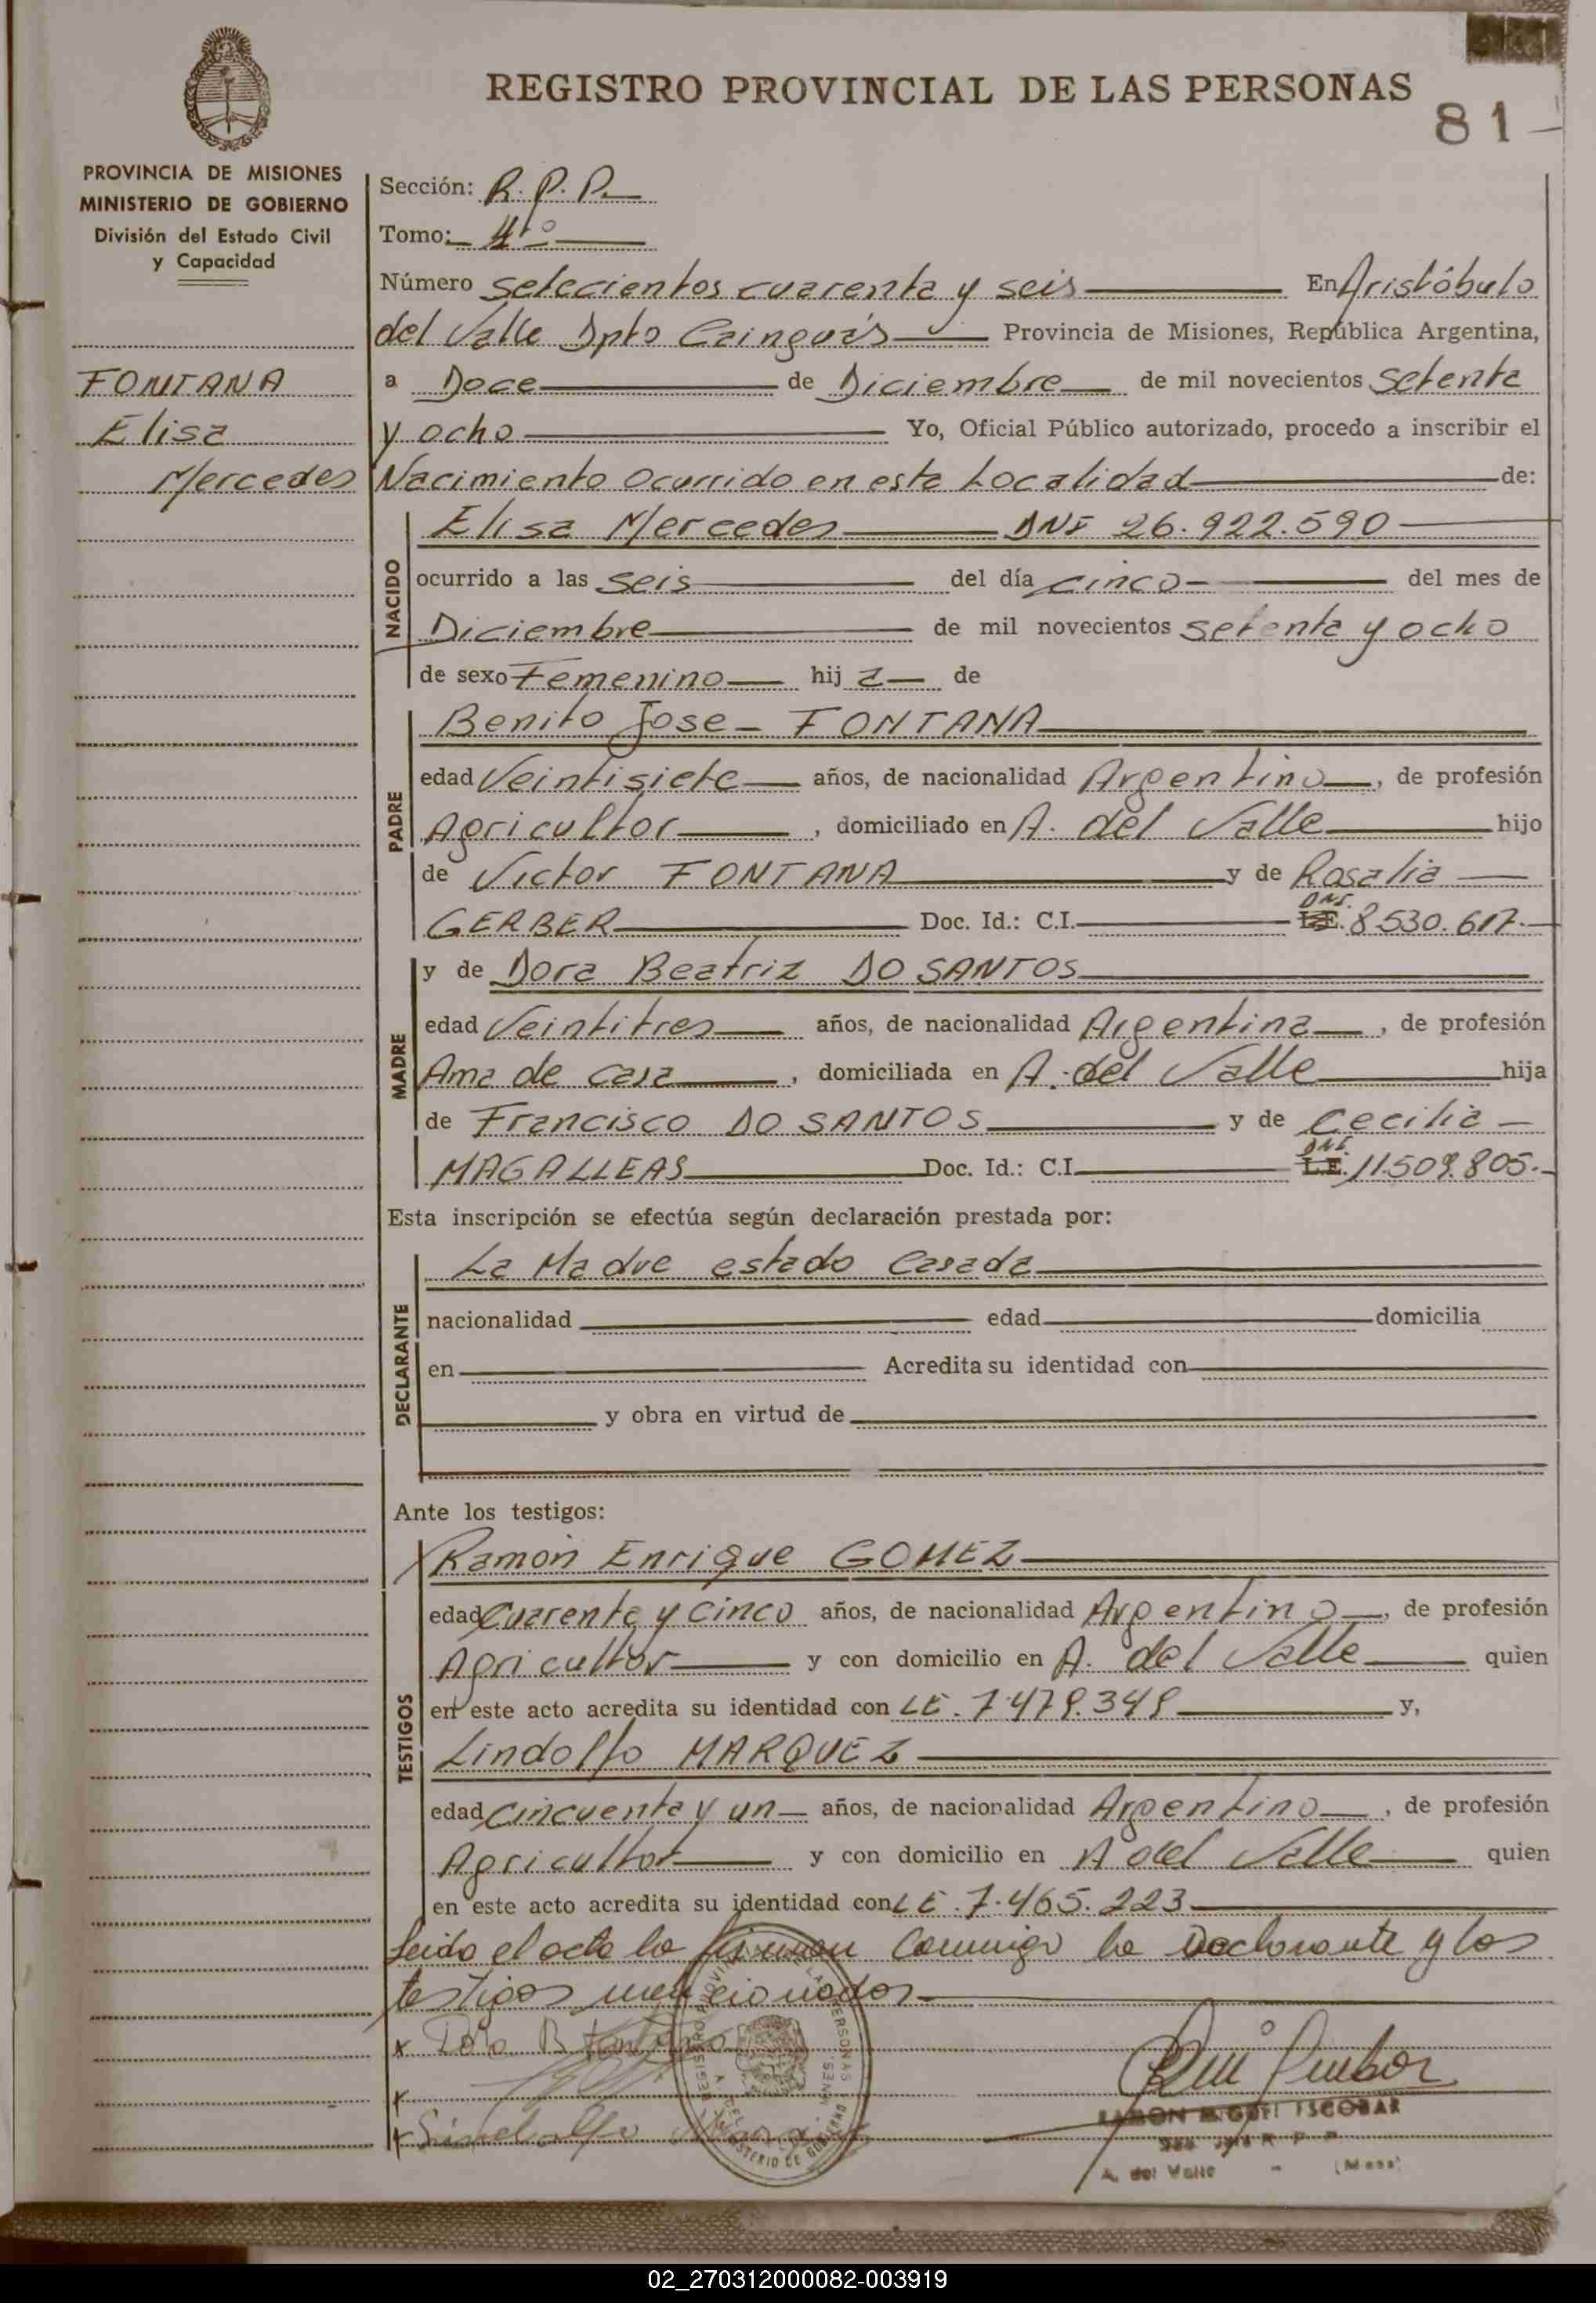 REGISTRO PROVINCIAL DE LAS PERSONAS
81
PROVINCIA DE MISIONES
MINISTERIO DE GOBIERNO
División del Estado Civil
y Capacidad
FONTANA
Elisa
Mercedes
Sección: R. P. P.
Tomo: 4to
Número setecientos cuarenta y seis En Aristóbulo
del Valle Dpto Cainguás Provincia de Misiones, República Argentina,
a Doce de Diciembre de mil novecientos setenta
y ocho Yo, Oficial Público autorizado, procedo a inscribir el
Nacimiento Ocurrido en esta Localidad de:
NACIDO
Elisa Mercedes DNI 26.922.590
ocurrido a las seis del día cinco del mes de
Diciembre de mil novecientos setenta y ocho
de sexo Femenino hij a de
PADRE
Benito Jose FONTANA
edad Veintisiete años, de nacionalidad Argentino, de profesión
Agricultor, domiciliado en A. del Valle hijo
de Victor FONTANA y de Rosalia
GERBER Doc. Id.: C.I. L.E. DNI. 8.530.617.
MADRE
y de Dora Beatriz DO SANTOS
edad Veintitres años, de nacionalidad Argentina, de profesión
Ama de casa, domiciliada en A. del Valle hija
de Francisco DO SANTOS y de Cecilia
MAGALLEAS Doc. Id.: C.I. L.E. DNI. 11.509.805.
Esta inscripción se efectúa según declaración prestada por:
DECLARANTE
La Madre estado Casada
nacionalidad edad domicilia
en Acredita su identidad con
y obra en virtud de
Ante los testigos:
TESTIGOS
Ramón Enrique GOMEZ
edad Cuarenta y cinco años, de nacionalidad Argentino, de profesión
Agricultor y con domicilio en A. del Valle quien
en este acto acredita su identidad con LE. 7.479.349 y,
Lindolfo MARQUEZ
edad Cincuenta y un años, de nacionalidad Argentino, de profesión
Agricultor y con domicilio en A del Valle quien
en este acto acredita su identidad con LE. 7.465.223
Leido el acta la firman Conmigo la Declarante y los
testigos mencionados.
x Dora B Fontana
x
x Lindolfo
RAMON MIGUEL ESCOBAR
A. del Valle - (Mnes)
02_270312000082-003919